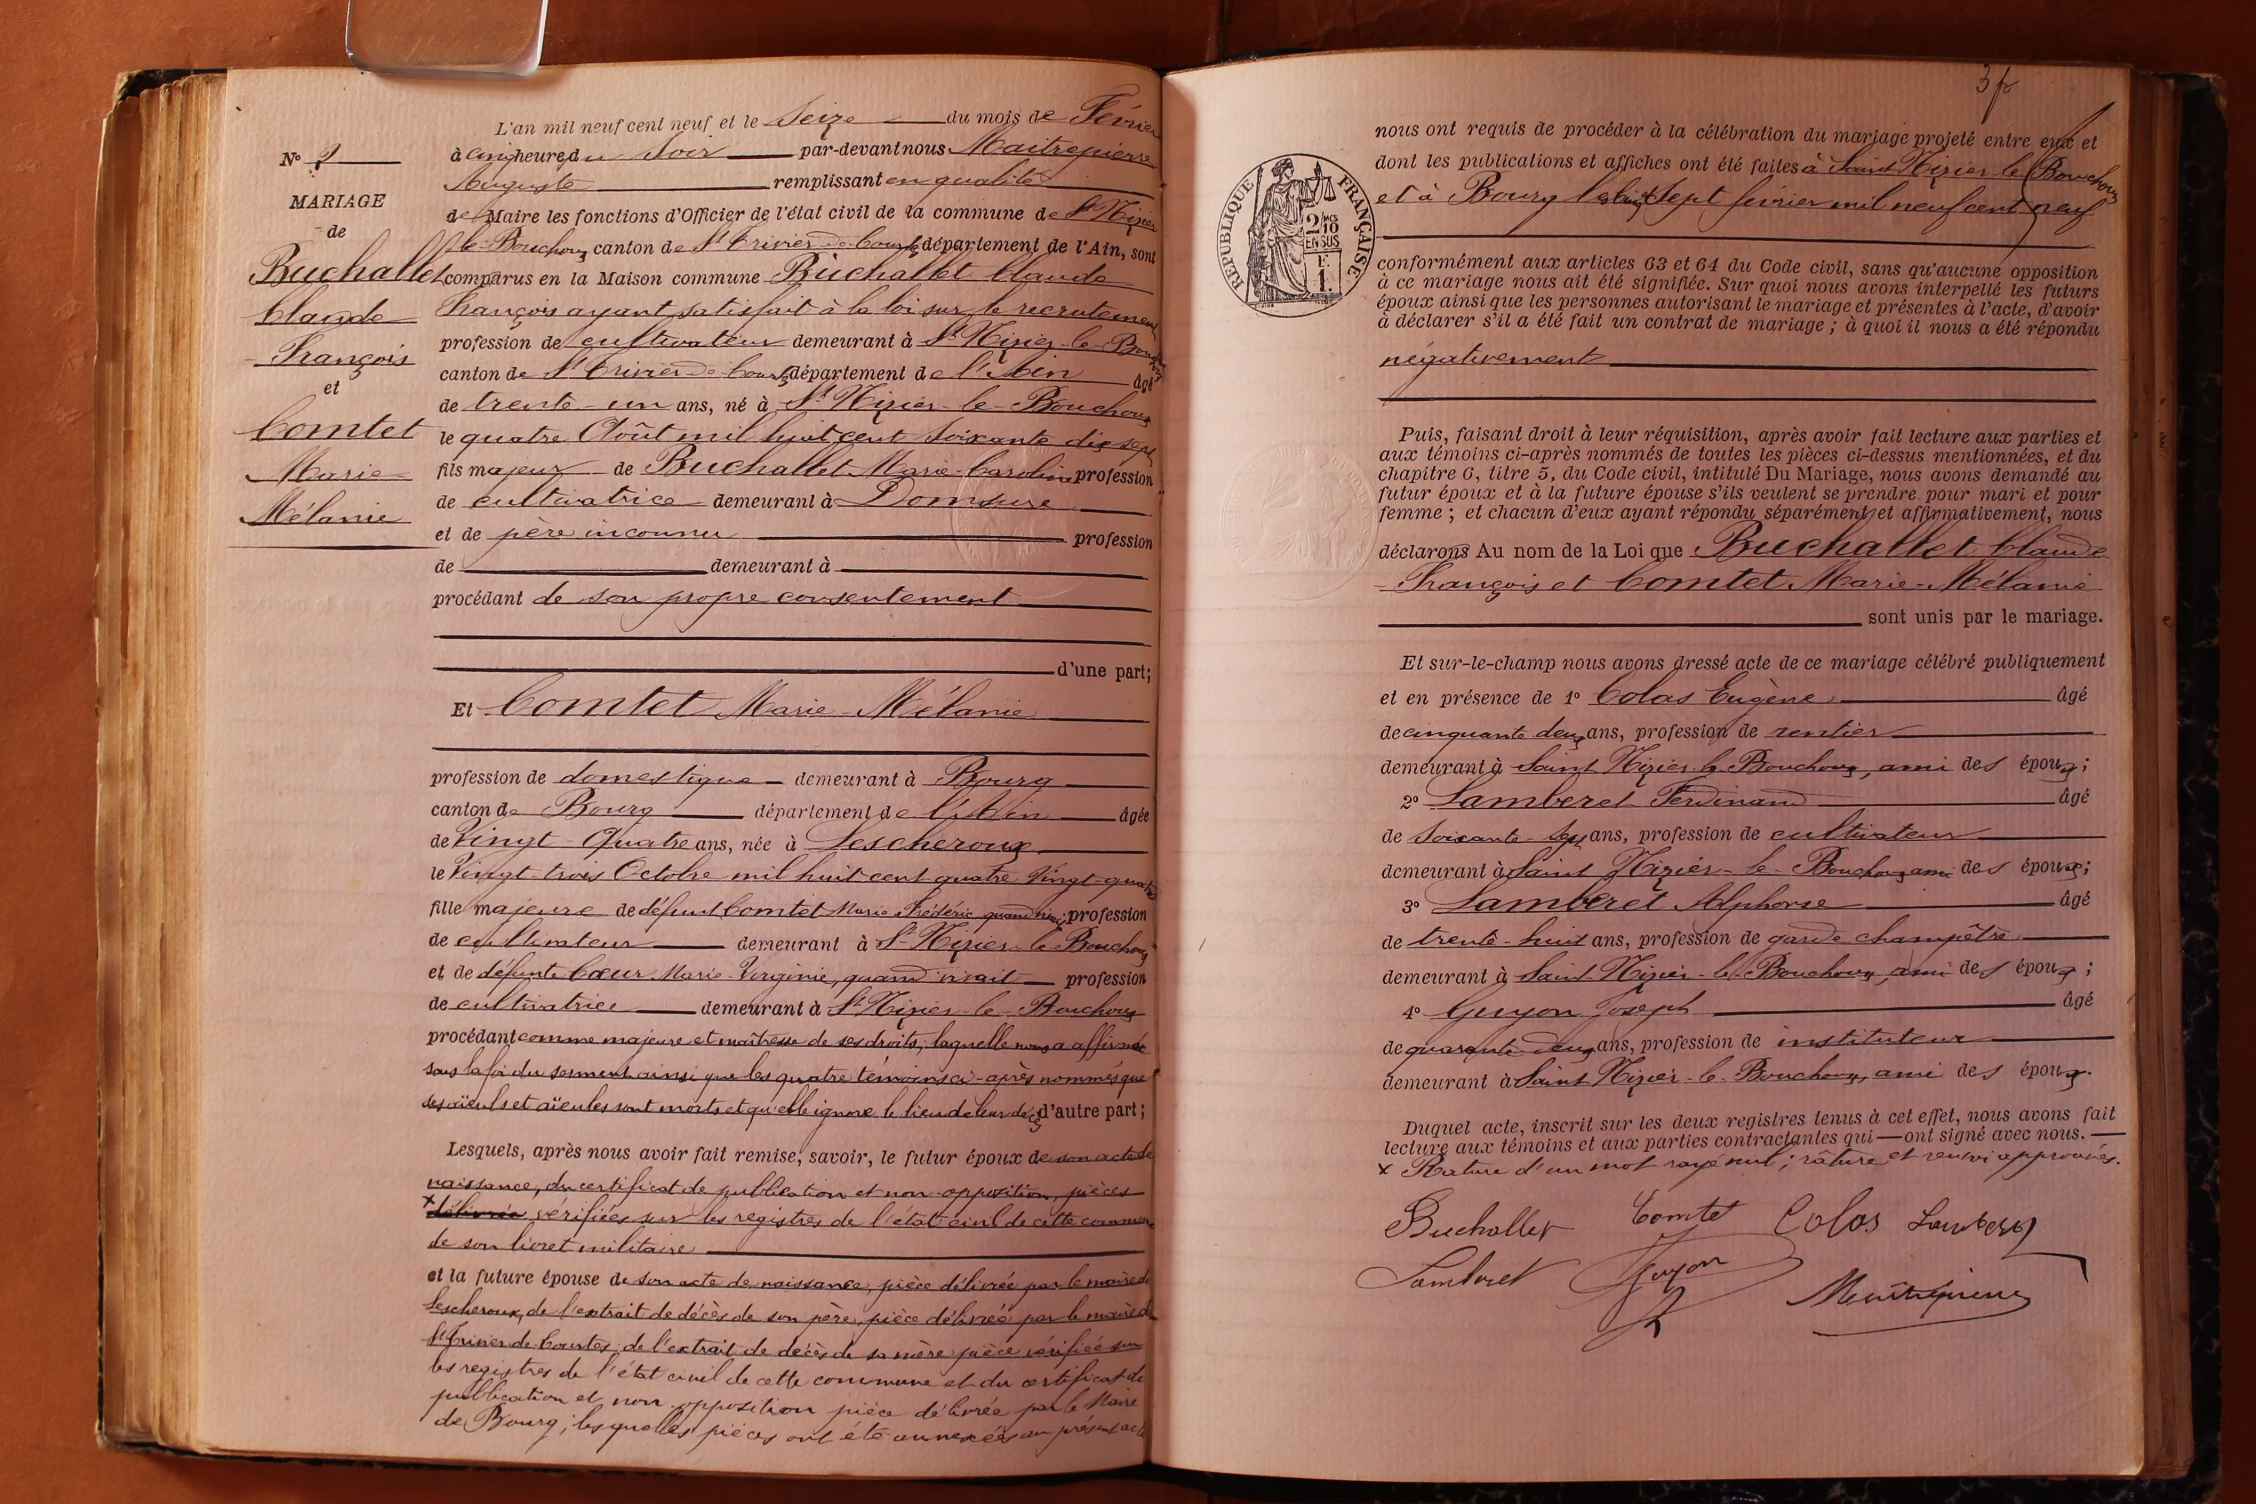 L'an mil neuf cent neuf et le Seize du mois de Février
à cinq heures du Soir par-devant nous Maitrepierre
Auguste remplissant en qualité
de Maire les fonctions d'Officier de l'état civil de la commune de St Nizier
le-Bouchoux canton de St Trivier-de-Courtes département de l'Ain, sont
comparus en la Maison commune Buchallet Claude
François ayant satisfait à la loi sur le recrutement
profession de cultivateur demeurant à St Nizier-le-Bouchoux
canton de St Trivier-de-Courtes département de l'Ain âgé
de trente-un ans, né à St Nizier-le-Bouchoux
le quatre Août mil huit cent soixante dix sept
fils majeur de Buchallet Marie-Caroline profession
de cultivatrice demeurant à Domsure
et de père inconnu profession
de demeurant à
procédant de son propre consentement
d'une part;
Et Comtet Marie-Mélanie
profession de domestique demeurant à Bourg
canton de Bourg département de l'Ain âgée
de Vingt-Quatre ans, née à Lescheroux
le Vingt-trois Octobre mil huit cent quatre-Vingt-quatre
fille majeure de défunt Comtet Marie Frédéric quand vivait profession
de cultivateur demeurant à St-Nizier-le-Bouchoux
et de défunte Cœur Marie-Virginie, quand vivait profession
de cultivatrice demeurant à St Nizier-le-Bouchoux
procédant comme majeure et maîtresse de ses droits, laquelle nous a affirmé
sous la foi du serment ainsi que les quatre témoins ci-après nommés que
ses aïeuls et aïeules sont morts et qu'elle ignore le lieu de leur décès d'autre part;
Lesquels, après nous avoir fait remise, savoir, le futur époux de son acte de
naissance, du certificat de publication et non-opposition, pièces
x délivrées vérifiées sur les registres de l'état civil de cette commune
de son livret militaire
et la future épouse de son acte de naissance, pièce délivrée par le maire de
Lescheroux, de l'extrait de décès de son père, pièce délivrée par le maire de
St Trivier de Courtes, de l'extrait de décès de sa mère pièce vérifiée sur
les registres de l'état civil de cette commune et du certificat de
publication et non opposition pièce délivrée par le Maire
de Bourg; lesquelles pièces ont été annexées au présent acte
No
MARIAGE
de
Buchallet
Claude
François
et
Comtet
Marie
Mélanie
nous ont requis de procéder à la célébration du mariage projeté entre eux et
dont les publications et affiches ont été faites à Saint Nizier-le-Bouchoux
et à Bourg le sept février mil neuf cent neuf
RÉPUBLIQUE FRANÇAISE
2/10
EN SUS
F.
1.
conformément aux articles 63 et 64 du Code civil, sans qu'aucune opposition
à ce mariage nous ait été signifiée. Sur quoi nous avons interpellé les futurs
époux ainsi que les personnes autorisant le mariage et présentes à l'acte, d'avoir
à déclarer s'il a été fait un contrat de mariage; à quoi il nous a été répondu
négativement
Puis, faisant droit à leur réquisition, après avoir fait lecture aux parties et
aux témoins ci-après nommés de toutes les pièces ci-dessus mentionnées, et du
chapitre 6, titre 5, du Code civil, intitulé Du Mariage, nous avons demandé au
futur époux et à la future épouse s'ils veulent se prendre pour mari et pour
femme; et chacun d'eux ayant répondu séparément et affirmativement, nous
déclarons Au nom de la Loi que Buchallet Claude
François et Comtet Marie-Mélanie
sont unis par le mariage.
Et sur-le-champ nous avons dressé acte de ce mariage célébré publiquement
et en présence de 1o Colas Eugène âgé
de cinquante deux ans, profession de rentier
demeurant à Saint Nizier-le-Bouchoux, ami des époux;
2o Lamberet Ferdinand âgé
de soixante-sept ans, profession de cultivateur
demeurant à Saint Nizier-le-Bouchoux ami des époux;
3o Lamberet Alphonse âgé
de trente-huit ans, profession de garde champêtre
demeurant à Saint Nizier-le-Bouchoux, ami des époux;
4o Guyon Joseph âgé
de quarante-deux ans, profession de instituteur
demeurant à Saint Nizier-le-Bouchoux, ami des époux.
Duquel acte, inscrit sur les deux registres tenus à cet effet, nous avons fait
lecture aux témoins et aux parties contractantes qui — ont signé avec nous. —
x Rature d'un mot rayé nul; râture et renvoi approuvés.
Buchallet Comtet Colas Lamberet
Lamberet Guyon Maitrepierre